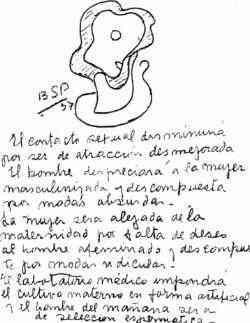 BSP
57
El contacto sexual disminuirá
por ser de atracción desmejorada
El hombre despreciará a la mujer
masculinizada y descompuesta
por modas absurdas.-
La mujer sera alejada de la
maternidad por falta de deseo
al hombre afeminado y descompues
to por modas ridiculas.-
El laboratorio médico impondrá
el cultivo materno en forma artificial
y el hombre del mañana sera
de selección espermatica.-